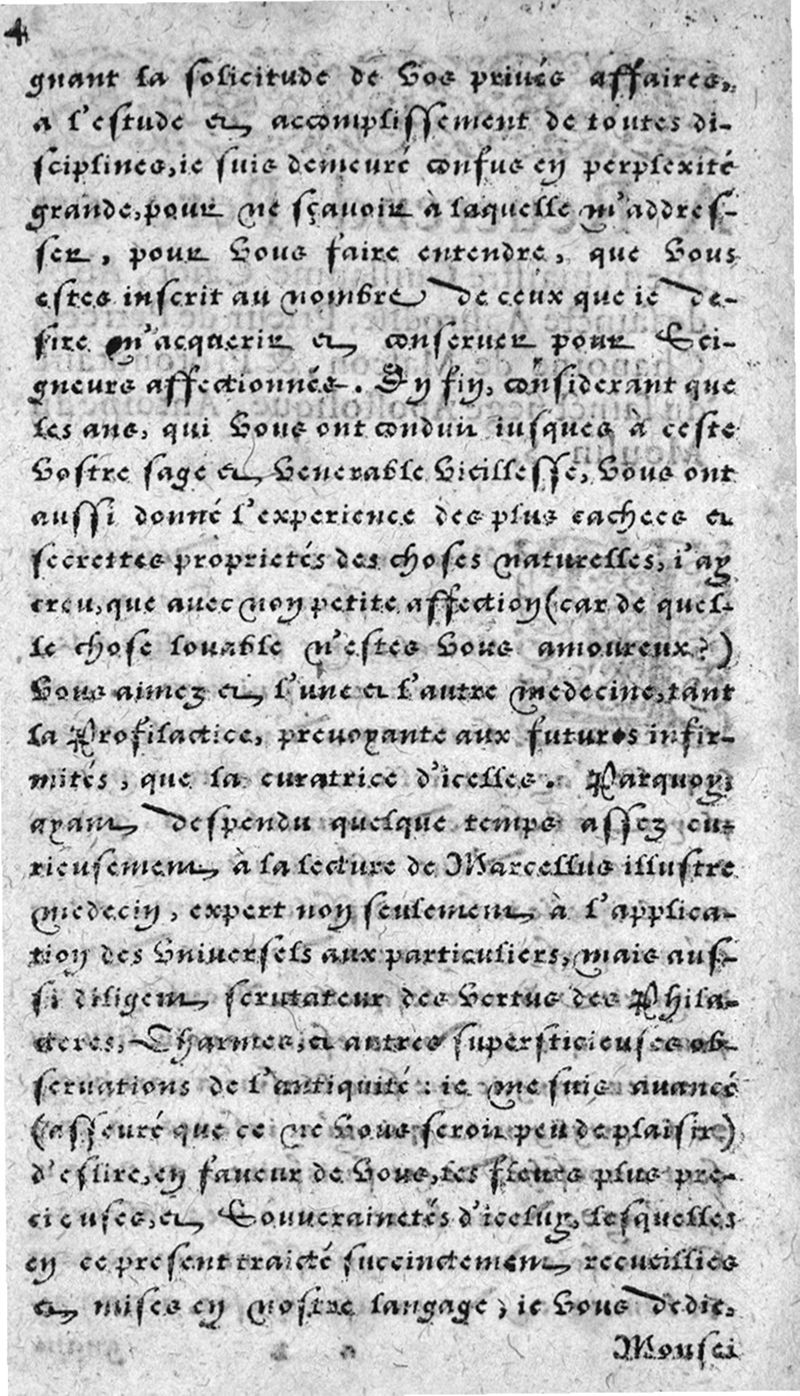 4
gnant la solicitude de vos privés affaires,
a l'estude et accomplissement de toutes di-
sciplines, ie suis demeuré confus en perplexité
grande, pour ne sçavoir à laquelle m'addres-
ser, pour vous faire entendre, que vous
estes inscrit au nombre de ceux que ie de-
sire m'acquerir et conserver pour Sei-
gneurs affectionnés. En fin, considerant que
les ans, qui vous ont conduit iusques à ceste
vostre sage et venerable vieillesse, vous ont
aussi donné l'experience des plus cachees et
secrettes proprietés des choses naturelles, i'ay
creu, que avec non petite affection (car de quel-
le chose louable n'estes vous amoureux?)
vous aimez et l'une et l'autre medecine, tant
la Profilactice, prevoyante aux futures infir-
mités, que la curatrice d'icelles. Parquoy,
ayant despendu quelque temps assez cu-
rieusement à la lecture de Marcellus illustre
medecin, expert non seulement à l'applica-
tion des universels aux particuliers, mais aus-
si diligent scrutateur des vertus des Phila-
cteres, Charmes, et autres supersticieuses ob-
servations de l'antiquité: ie me suis avancé
(asseuré que ce ne vous seroit peu de plaisir)
d'eslire, en faveur de vous, les fleurs plus pre-
cieuses, et Souverainetés d'iceluy, lesquelles
en ce present traicté succinctement recueillies
et mises en nostre langage, ie vous dedie,
Monsei